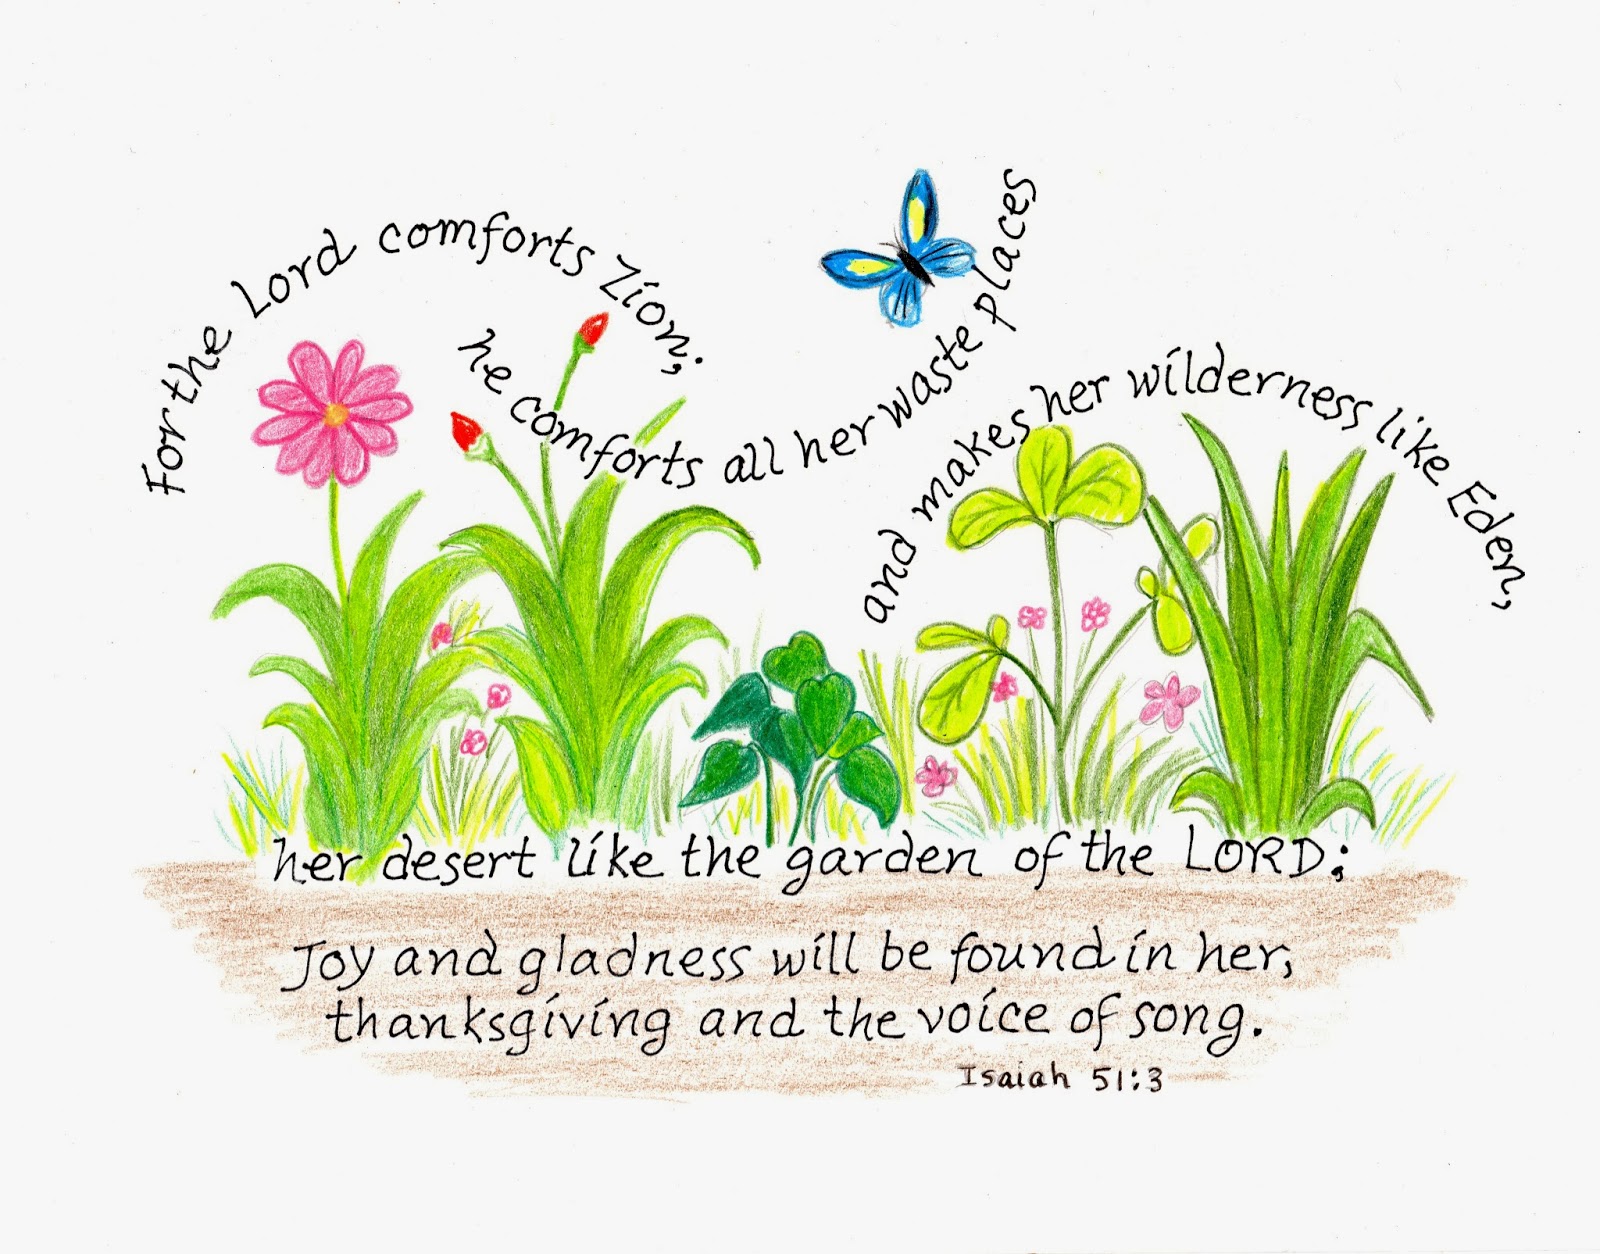 For the Lord comforts Zion;
he comforts all her waste places
and makes her wilderness like Eden,
her desert like the garden of the LORD;
Joy and gladness will be found in her,
thanksgiving and the voice of song.
Isaiah 51:3